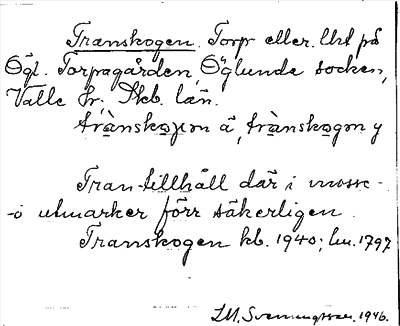 Transkogen. Torp eller. Uts på
Ögl. Torpagården, Öglunda socken,
Valle hr; Skb. län.
trànskoɡɷn ä, trànskogɷn y
Tran-tillhåll där i mosse-
-o utmarker förr säkerligen.
Transkogen kb. 1940; hu. 1797
1946.